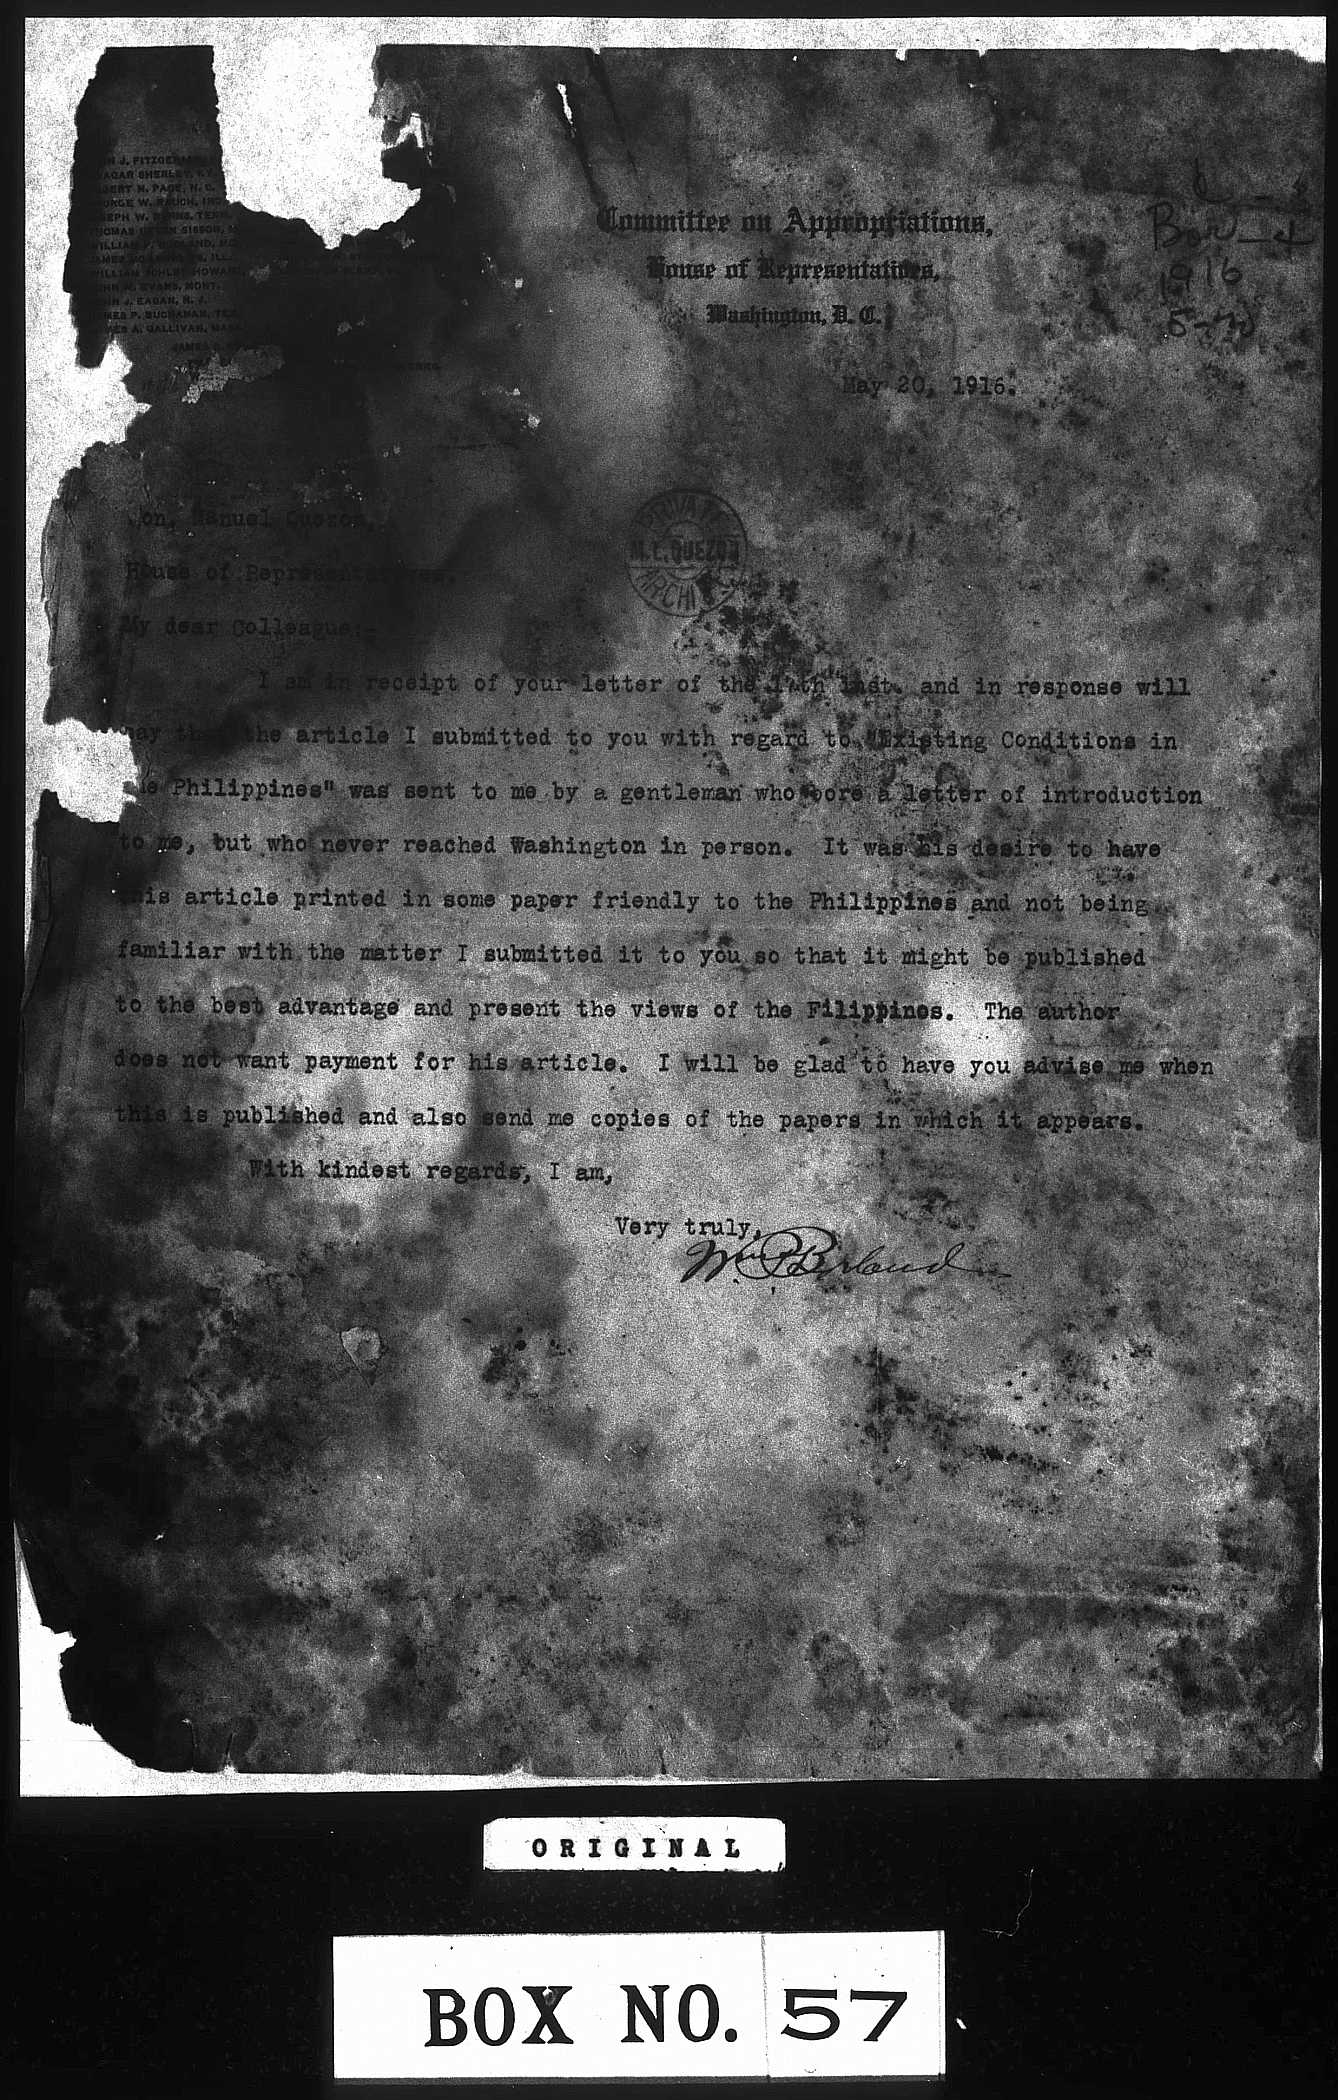 N J. FITZGERA
AGAR SHERLEY, KY.
BERT N. PAGE, N. C.
ORGE W. RAUCH, IND.
SEPH W. BYRNS, TENN.
THOMAS SISSON,
WILLIAM P. BORLAND, MO.
JAMES ILL.
WILLIAM SCHLEY HOWARD,
HN M. EVANS, MONT.
HN J. EAGAN, N. J.
MES P. BUCHANAN, TEX.
MES A. GALLIVAN, MASS.
Committee on Appropriations,
House of Representatives,
Washington, D. C.
Bor-4
1916
5-20
May 20, 1916.
on. Manuel Quezon,
House of Representatives.
PRIVATE
M.L. QUEZON
ARCHIVES
My dear Colleague:-
I am in receipt of your letter of the 17th inst. and in response will
say that the article I submitted to you with regard to "Existing Conditions in
he Philippines" was sent to me by a gentleman who bore a letter of introduction
to me, but who never reached Washington in person. It was his desire to have
this article printed in some paper friendly to the Philippines and not being
familiar with the matter I submitted it to you so that it might be published
to the best advantage and present the views of the Filippinos. The author
does not want payment for his article. I will be glad to have you advise me when
this is published and also send me copies of the papers in which it appears.
With kindest regards, I am,
Very truly,
Wm P Borland
ORIGINAL
BOX NO. 57